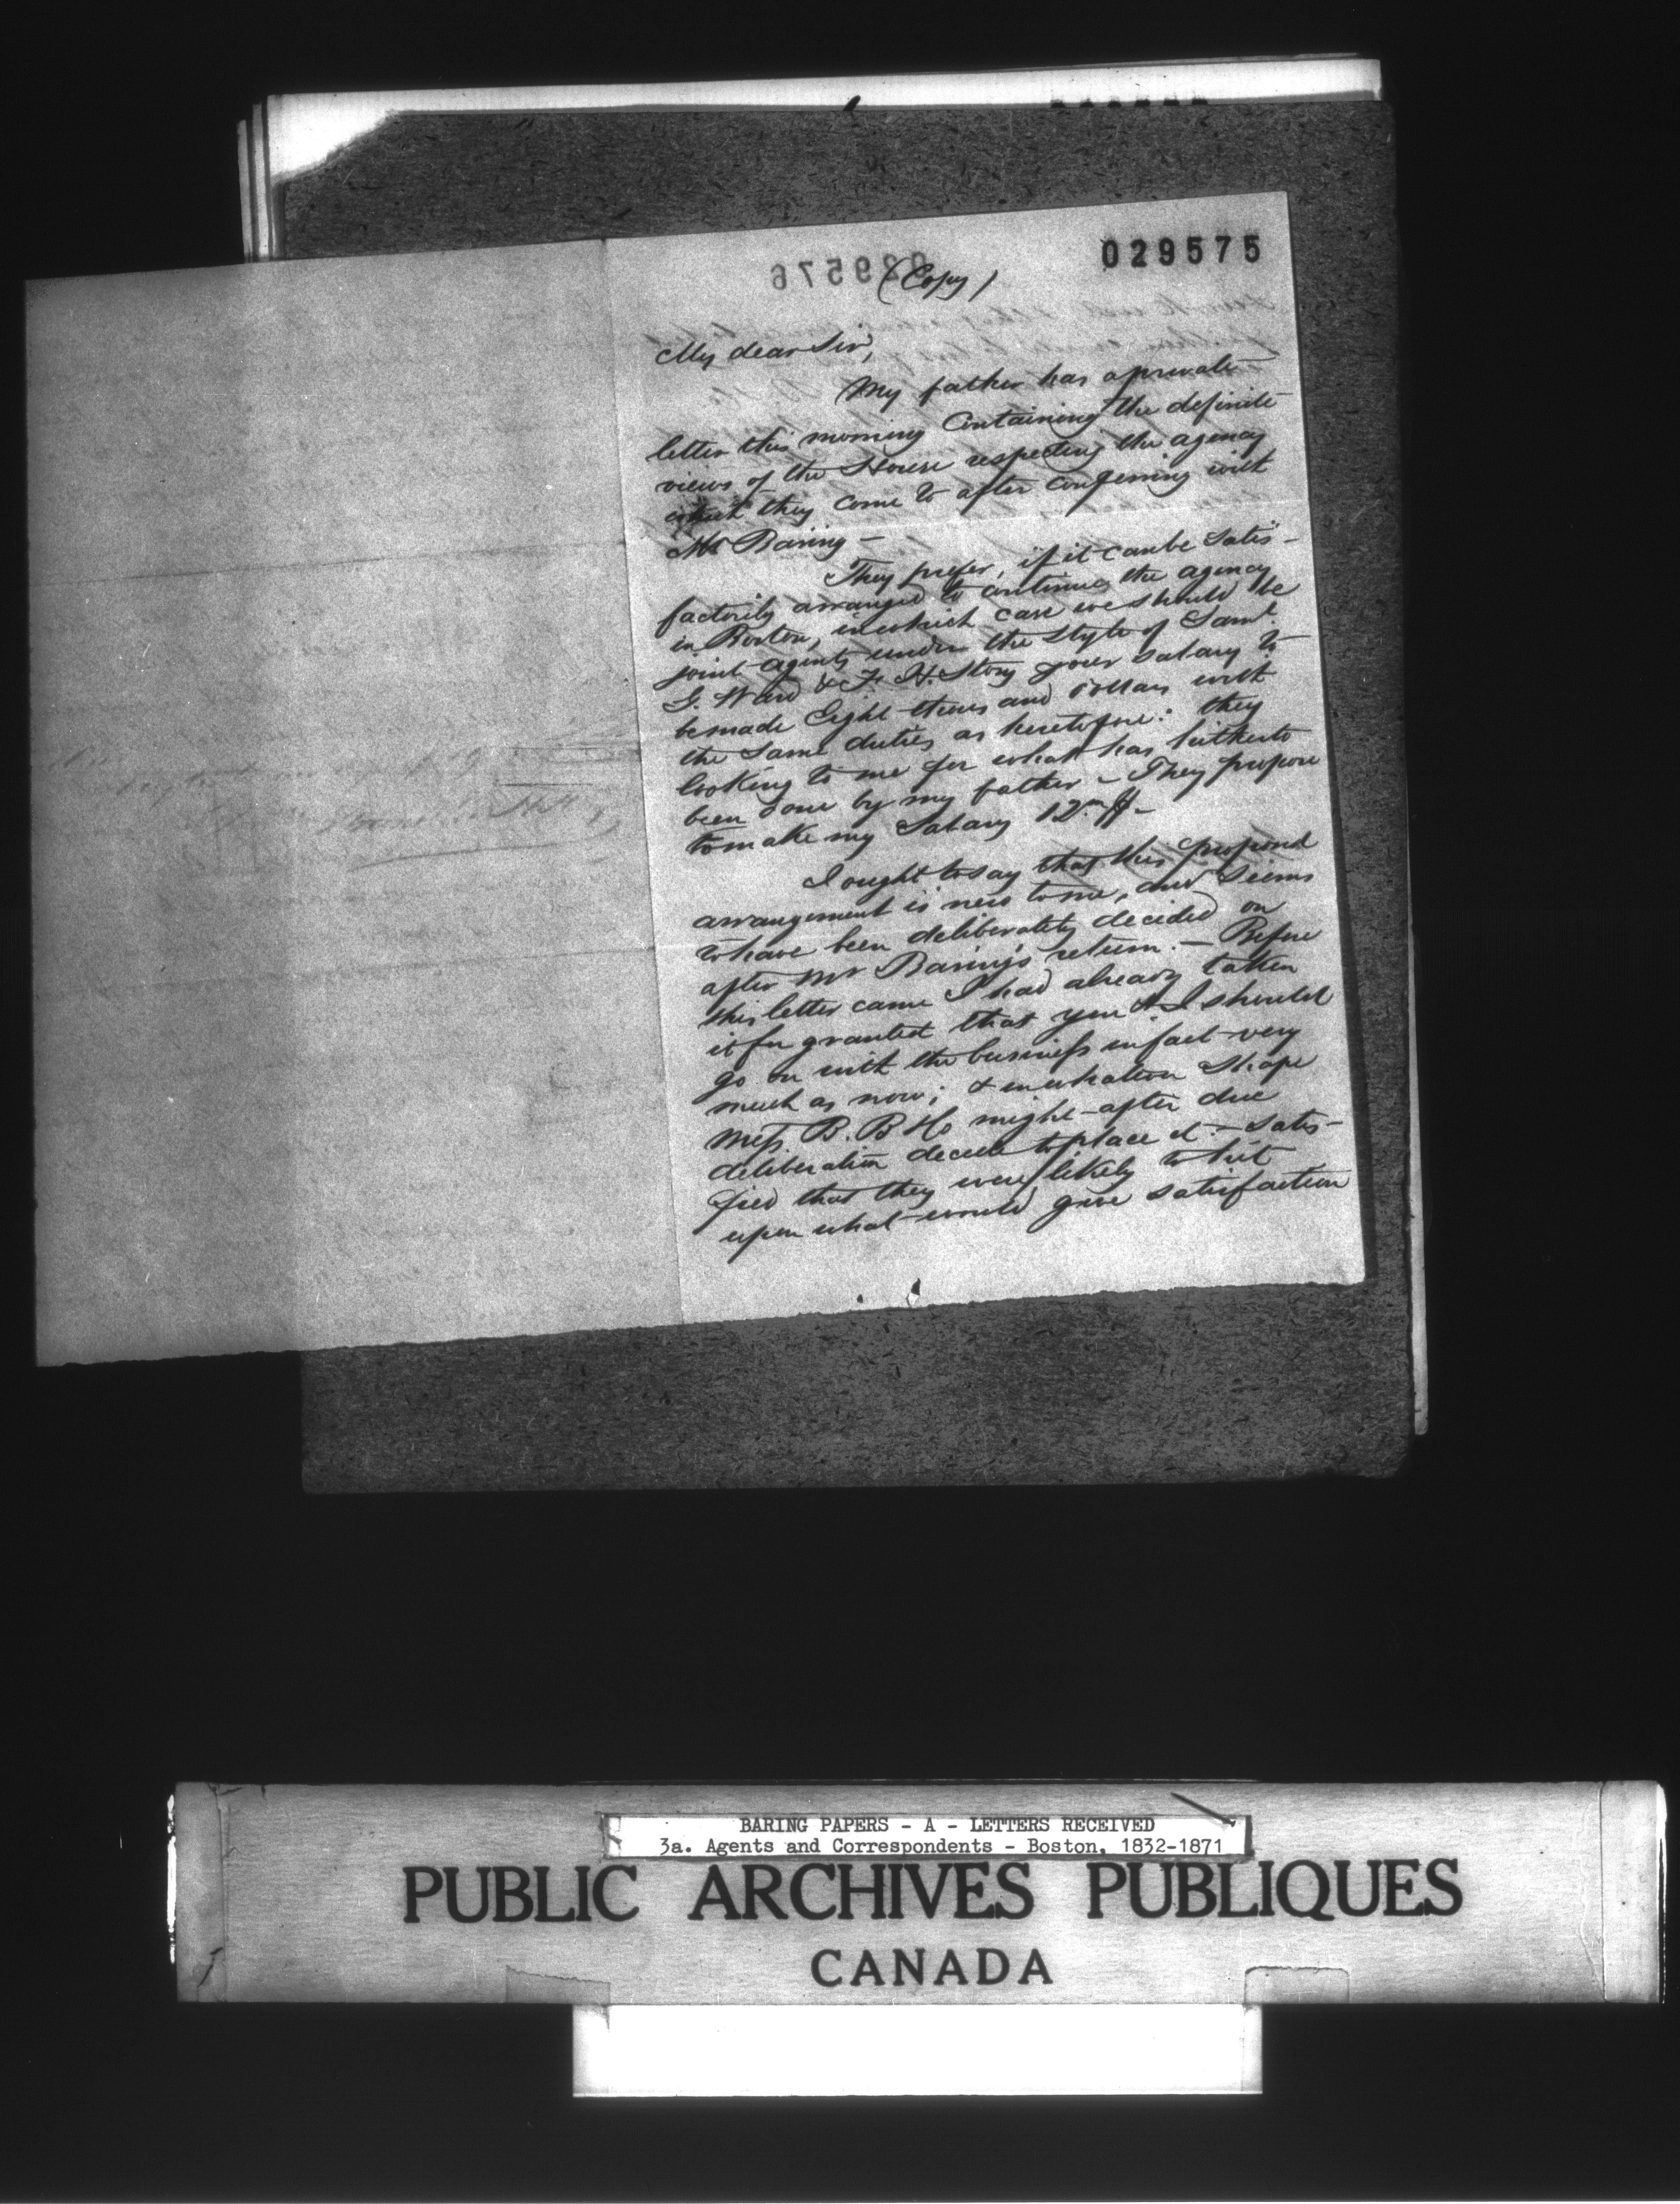 029575
029576
(Copy)
My dear Sir,
My father has a private
letter this morning Containing the definite
views of the House respecting the agency
which they come to after conferring with
Mr Baring —
They prefer, if it can be satis-
factorily arranged to continue the agency
in Boston, in which case we should be
joint agents under the style of Saml.
G. Ward & F. H. Story your salary to
be made Eight thousand dollars with
the same duties as heretofore: they
looking to me for what has hitherto
been done by my father — They propose
to make my Salary 12m $ —
I ought to say that this proposed
arrangement is new to me, and seems
to have been deliberately decided on
after Mr Baring's return. — Before
this letter came I had already taken
it for granted that you & I should
go on with the business in fact very
much as now; & in whatever shape
Mess B. B & Co might after due
deliberation decide to place it — satis-
fied that they were likely to hit
upon what would give satisfaction
BARING PAPERS - A - LETTERS RECEIVED
3a. Agents and Correspondents - Boston, 1832-1871
PUBLIC ARCHIVES PUBLIQUES
CANADA